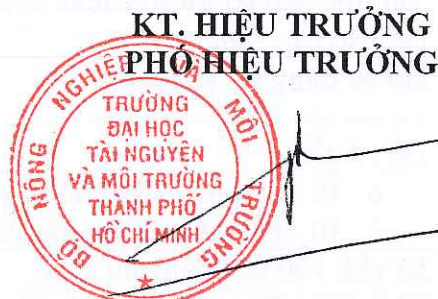 KT. HIỆU TRƯỞNG
PHÓ HIỆU TRƯỞNG
BỘ NÔNG NGHIỆP VÀ MÔI TRƯỜNG
TRƯỜNG
ĐẠI HỌC
TÀI NGUYÊN
VÀ MÔI TRƯỜNG
THÀNH PHỐ
HỒ CHÍ MINH